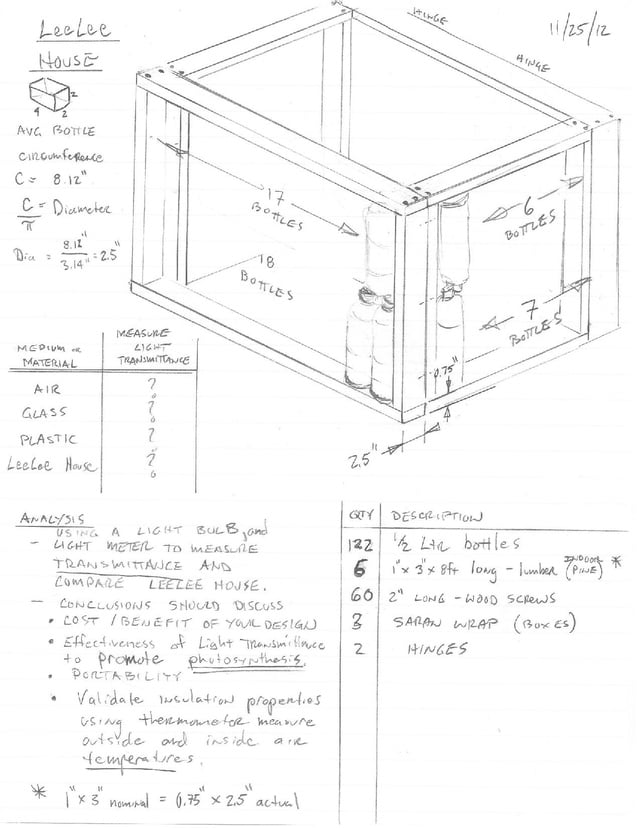 LeeLee
House
11/25/12
HINGE
HINGE
2
4 2
AVG. BOTTLE
circumference
C = 8.12"
C/π = Diameter
Dia = 8.12"/3.14" = 2.5"
17
BOTTLES
18
BOTTLES
6
BOTTLES
7
BOTTLES
0.75"
2.5"
MEDIUM or MATERIAL | MEASURE LIGHT TRANSMITTANCE
AIR ?
GLASS ?
PLASTIC ?
LeeLee House ?
ANALYSIS
USING A LIGHT BULB, and
- LIGHT METER TO MEASURE
TRANSMITTANCE AND
COMPARE LEELEE HOUSE.
- CONCLUSIONS SHOULD DISCUSS
• COST / BENEFIT OF YOUR DESIGN
• Effectiveness of Light Transmittance
to promote photosynthesis.
• PORTABILITY
• Validate insulation properties
using thermometor measure
outside and inside air
temperatures.
* 1" x 3" nominal = 0.75" x 2.5" actual
QTY DESCRIPTION
122 1/2 Ltr bottles
6 1" x 3" x 8ft long - lumber (INDOOR PINE) *
60 2" LONG - WOOD SCREWS
3 SARAN WRAP (BOXES)
2 HINGES